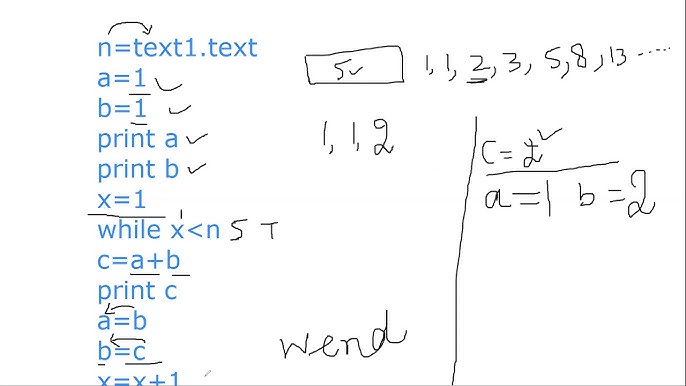 n=text1.text
a=1
b=1
print a
print b
x=1
while x<n 5 T
1
c=a+b
print c
a=b
b=c
x=x+1
5
1, 1, 2, 3, 5, 8, 13 .....
1, 1, 2
wend
c=2
a=1 b=2